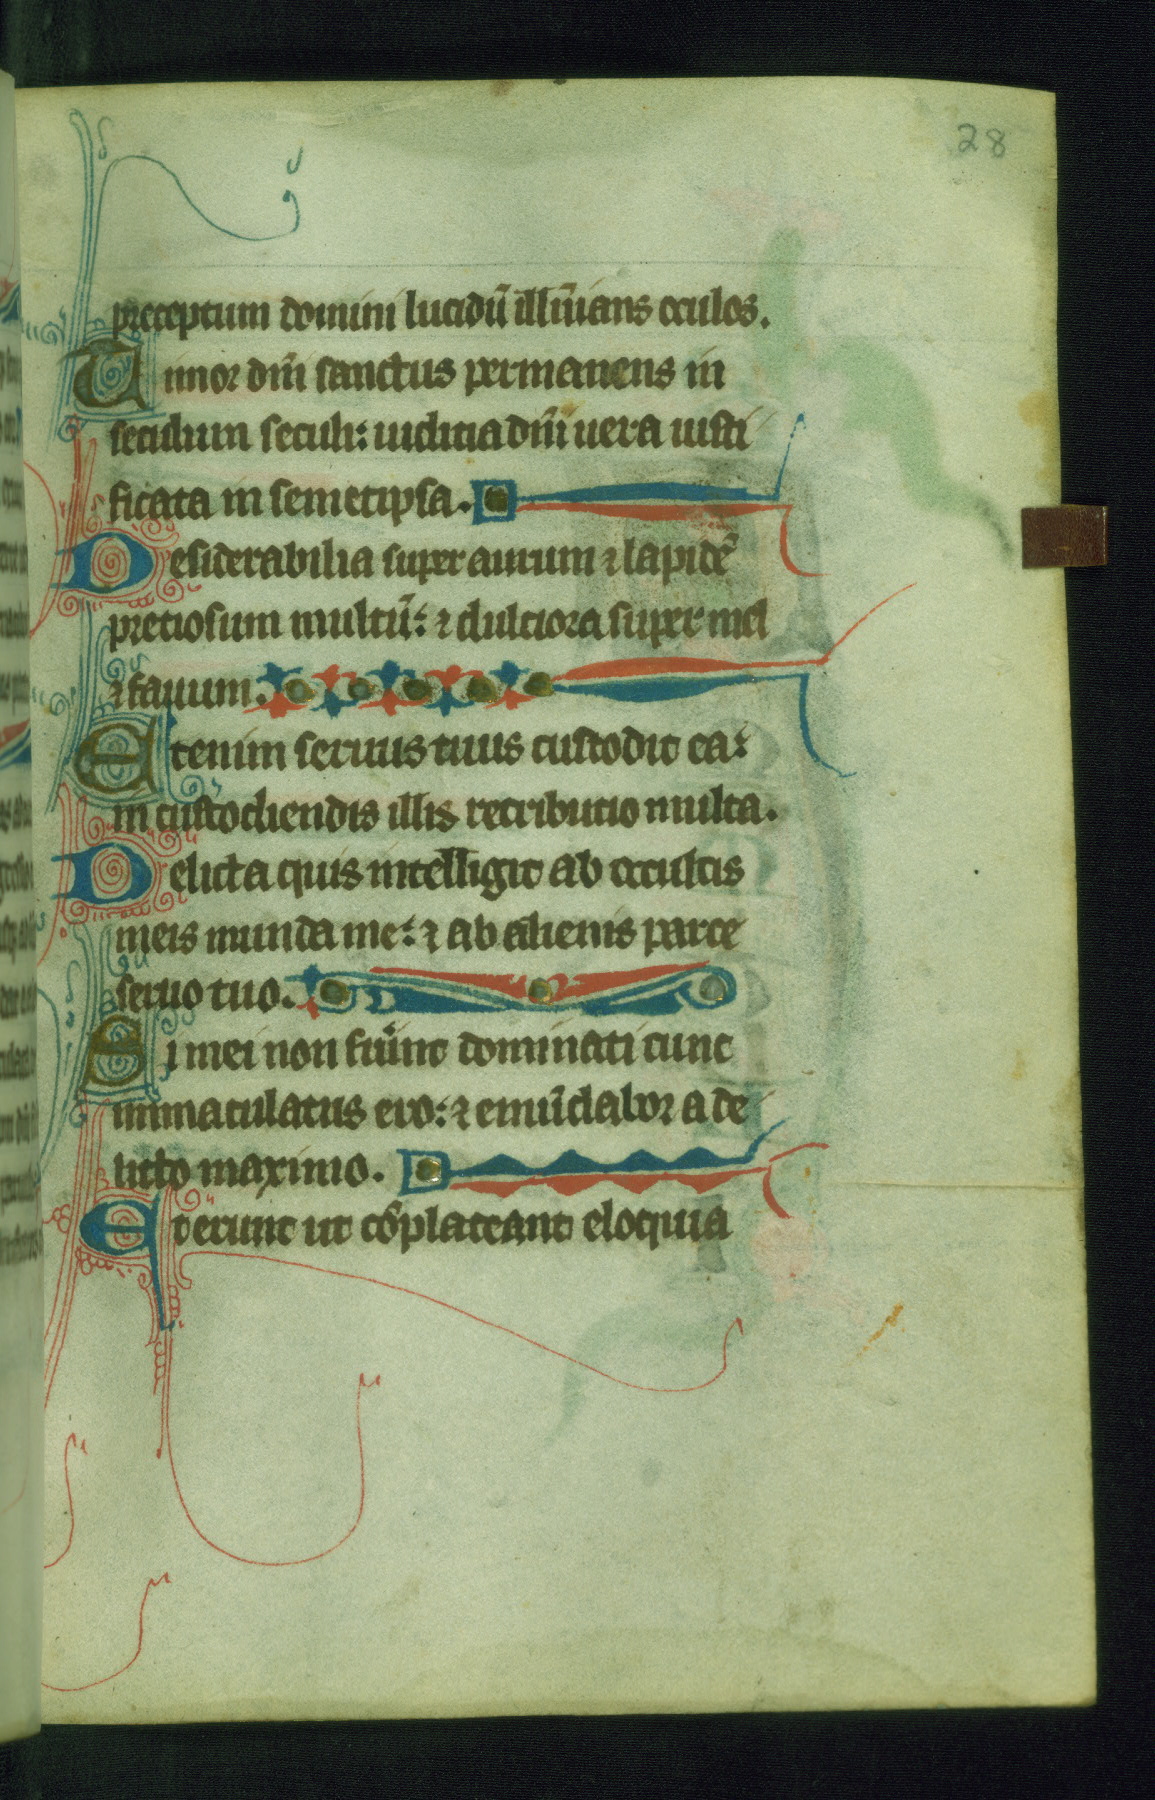 28
preceptum domini lucidū illūians oculos.
Timor dn̄i sanctus permanens in
seculum seculi: iudicia dn̄i uera iusti
ficata in semetipsa.
Desiderabilia super aurum ⁊ lapidē
pretiosum multū: ⁊ dulciora super mel
⁊ fauum.
Etenim seruus tuus custodit ea:
in custodiendis illis retributio multa.
Delicta quis intelligit ab occultis
meis munda me: ⁊ ab alienis parce
seruo tuo.
Si mei non fūint dominati tunc
immaculatus ero: ⁊ emūdabor a de
licto maximo.
Et erunt ut cōplaceant eloquia